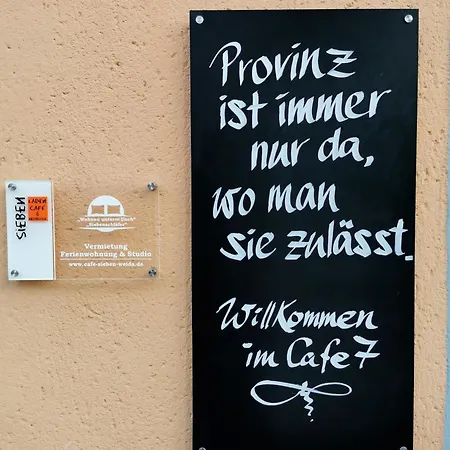 SIEBEN
LADEN
CAFÉ
&
„Wohnen unterm Dach“
„Siebenschläfer“
Vermietung
Ferienwohnung & Studio
www.cafe-sieben-weida.de
Provinz
ist immer
nur da,
wo man
sie zulässt.
Willkommen
im Cafe 7